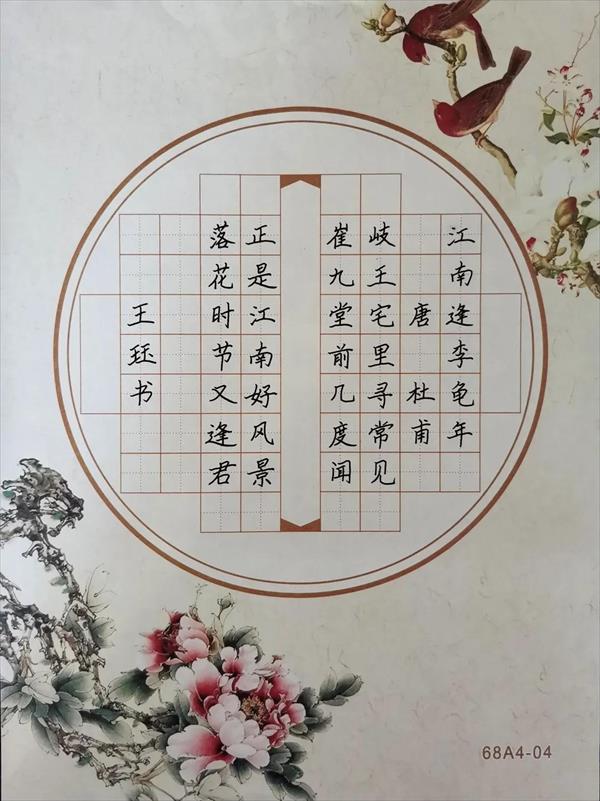 江南逢李龟年
唐 杜甫
岐王宅里寻常见
崔九堂前几度闻
正是江南好风景
落花时节又逢君
王珏书
68A4-04